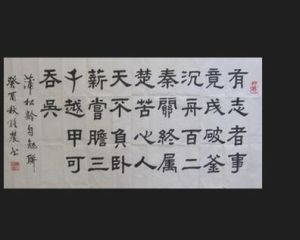 有志者事
竟成破釜
沉舟百二
秦關終属
楚苦心人
天不負卧
薪嘗膽三
千越甲可
吞吳
蒲松齡自勉聯
癸酉秋